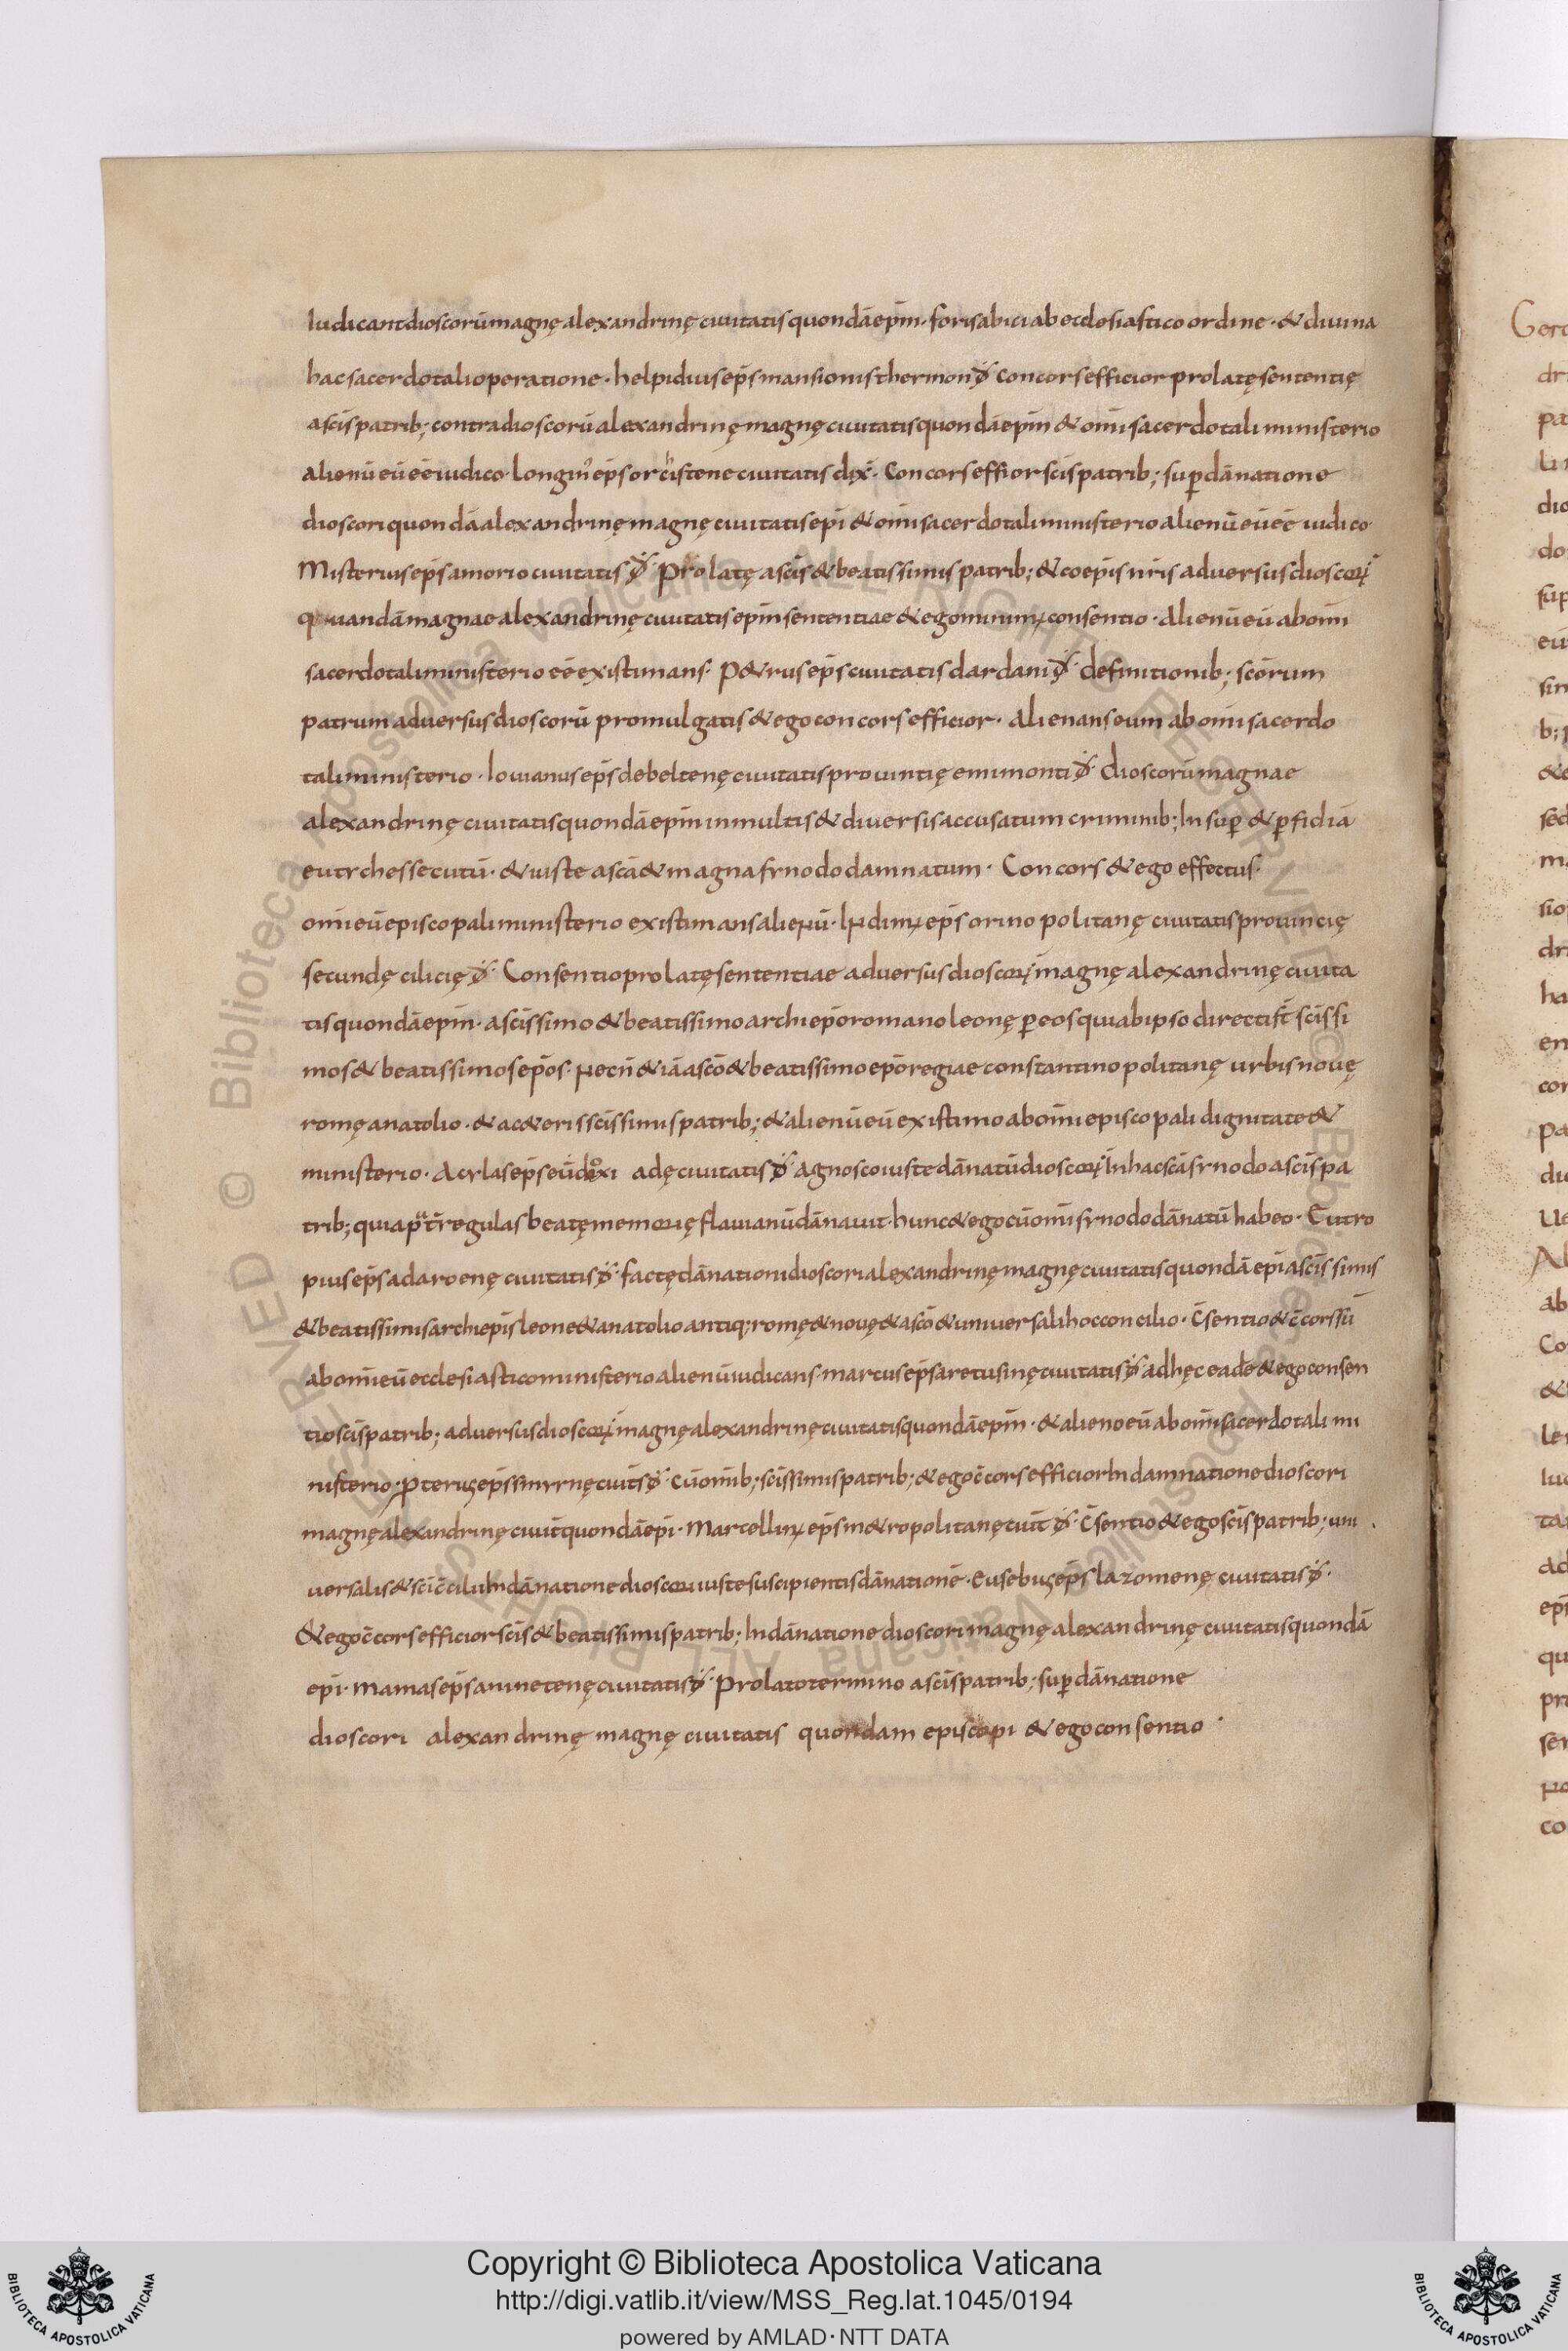 Iudicant dioscorū magnę alexandrinę ciuitatis quondā ep̄m · foris abici ab ecclesiastico ordine · & diuina
hac sacerdotali operatione · helpidius ep̄s mansionis thermon đ Concors efficior prolatę sententię
a sc̄is patrib; contra dioscorū alexandrinę magnę ciuitatis quondā ep̄m & om̄i sacerdotali ministerio
alienū eū eē iudico · ep̄s ciuitatis dix̄ · Concors effior sc̄is patrib; suꝑ dānatione
dioscori quondā alexandrinę magnę ciuitatis ep̄i & om̄i sacerdotali ministerio alienū eū eē iudico
Misterius ep̄s amorio ciuitatis đ · Prolatę a sc̄is & beatissimis patrib; & coep̄is n̄ris aduersus dioscorū
quandā magnae alexandrinę ciuitatis ep̄m sententiae & ego consentio · Alienū eū ab om̄i
sacerdotali ministerio eē existimans · P&rus ep̄s ciuitatis dardani đ · definitionib; sc̄orum
patrum aduersus dioscorū promulgatis & ego concors efficior · Alienans eum ab om̄i sacerdo
tali ministerio · Iouianus ep̄s debeltenę ciuitatis prouintię emimonti đ · dioscorū magnae
alexandrinę ciuitatis quondā ep̄m in multis & diuersis accusatum criminib; Insuꝑ & ꝑfidiā
eutychis secutū · & iuste a sc̄a & magna synodo damnatum · Concors & ego effectus ·
om̄i eū episcopali ministerio existimans alienū · ep̄s orinopolitanę ciuitatis prouincię
secundę cilicię đ · Consentio prolatę sententiae aduersus dioscorū magnę alexandrinę ciuita
tis quondā ep̄m · a sc̄issimo & beatissimo archiep̄o romano leonę ꝑ eos qui ab ipso directi st̄ sc̄issi
mos & beatissimos ep̄os · Necn̄ & iā a sc̄o & beatissimo ep̄o regiae constantinopolitanę urbis nouę
romę anatolio · & a c&eris sc̄issimis patrib; & alienū eū existimo ab om̄i episcopali dignitate &
ministerio · Acylas ep̄s adę ciuitatis đ · agnosco iuste dānatū dioscorū In hac sc̄a synodo a sc̄is pa
trib; quia regulas beatę memorię flauianū dānauit · hunc & ego cū om̄i synodo dānatū habeo · Eutro
pius ep̄s adaroenę ciuitatis đ · factę dānationi dioscori alexandrinę magnę ciuitatis quondā ep̄i a sc̄issimis
& beatissimis archiep̄is leone & anatolio antiq; romę & nouę & a sc̄o & uniuersali hoc concilio · c̄sentio & c̄cors sū
ab om̄i eū ecclesiastico ministerio alienū iudicans · marcus ep̄s aretusinę ciuitatis đ · ad hęc eadē & ego consen
tio sc̄is patrib; aduersus dioscorū magnę alexandrinę ciuitatis quondā ep̄m · & alieno eū ab om̄i sacerdotali mi
nisterio · ep̄s smyrnę đ · cū om̄ib; sc̄issimis patrib; & ego c̄cors efficior In damnatione dioscori
magnę alexandrinę quondā ep̄i · ep̄s m&ropolitanę đ · c̄sentio & ego sc̄is patrib; uni
uersalis & sc̄i c̄cilii In dānatione dioscori iuste suscipientis dānationē · ep̄s lazomenę ciuitatis đ ·
& ego c̄cors efficior sc̄is & beatissimis patrib; In dānatione dioscori magnę alexandrinę ciuitatis quondā
ep̄i · mamas ep̄s aninetenę ciuitatis đ · Prolato termino a sc̄is patrib; suꝑ dānatione
dioscori alexandrinę magnę ciuitatis quondam episcopi & ego consentio ·
Copyright © Biblioteca Apostolica Vaticana
http://digi.vatlib.it/view/MSS_Reg.lat.1045/0194
powered by AMLAD · NTT DATA